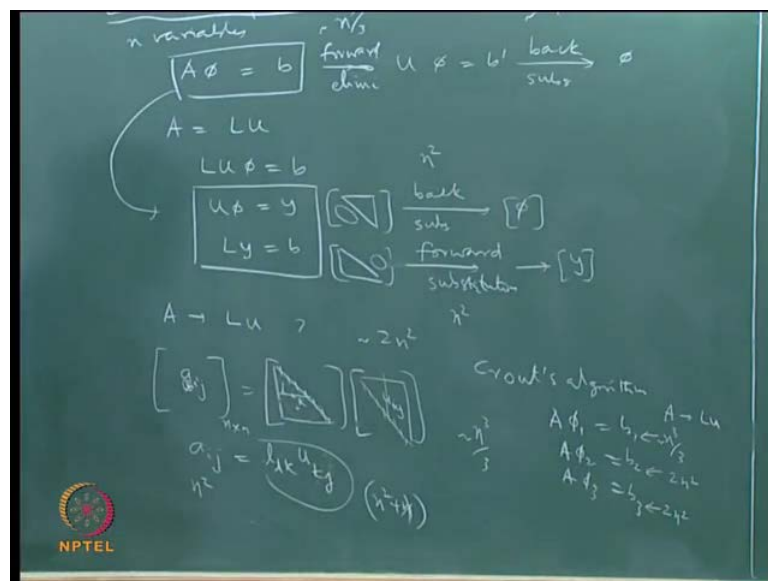 n variables
~ n/3
Aφ = b forward elimi Uφ = b' back subs φ
A = LU
LUφ = b
n²
Uφ = y back subs [φ]
Ly = b forward substitution → [y]
n²
A → LU ?
~ 2n²
[aij] n×n = [ ] [ ]
aij = lik ukj
n²
(n²+n)
~ n³/3
Crout's algorithm
A → LU
Aφ₁ = b₁ ← n³/3
Aφ₂ = b₂ ← 2n²
Aφ₃ = b₃ ← 2n²
NPTEL